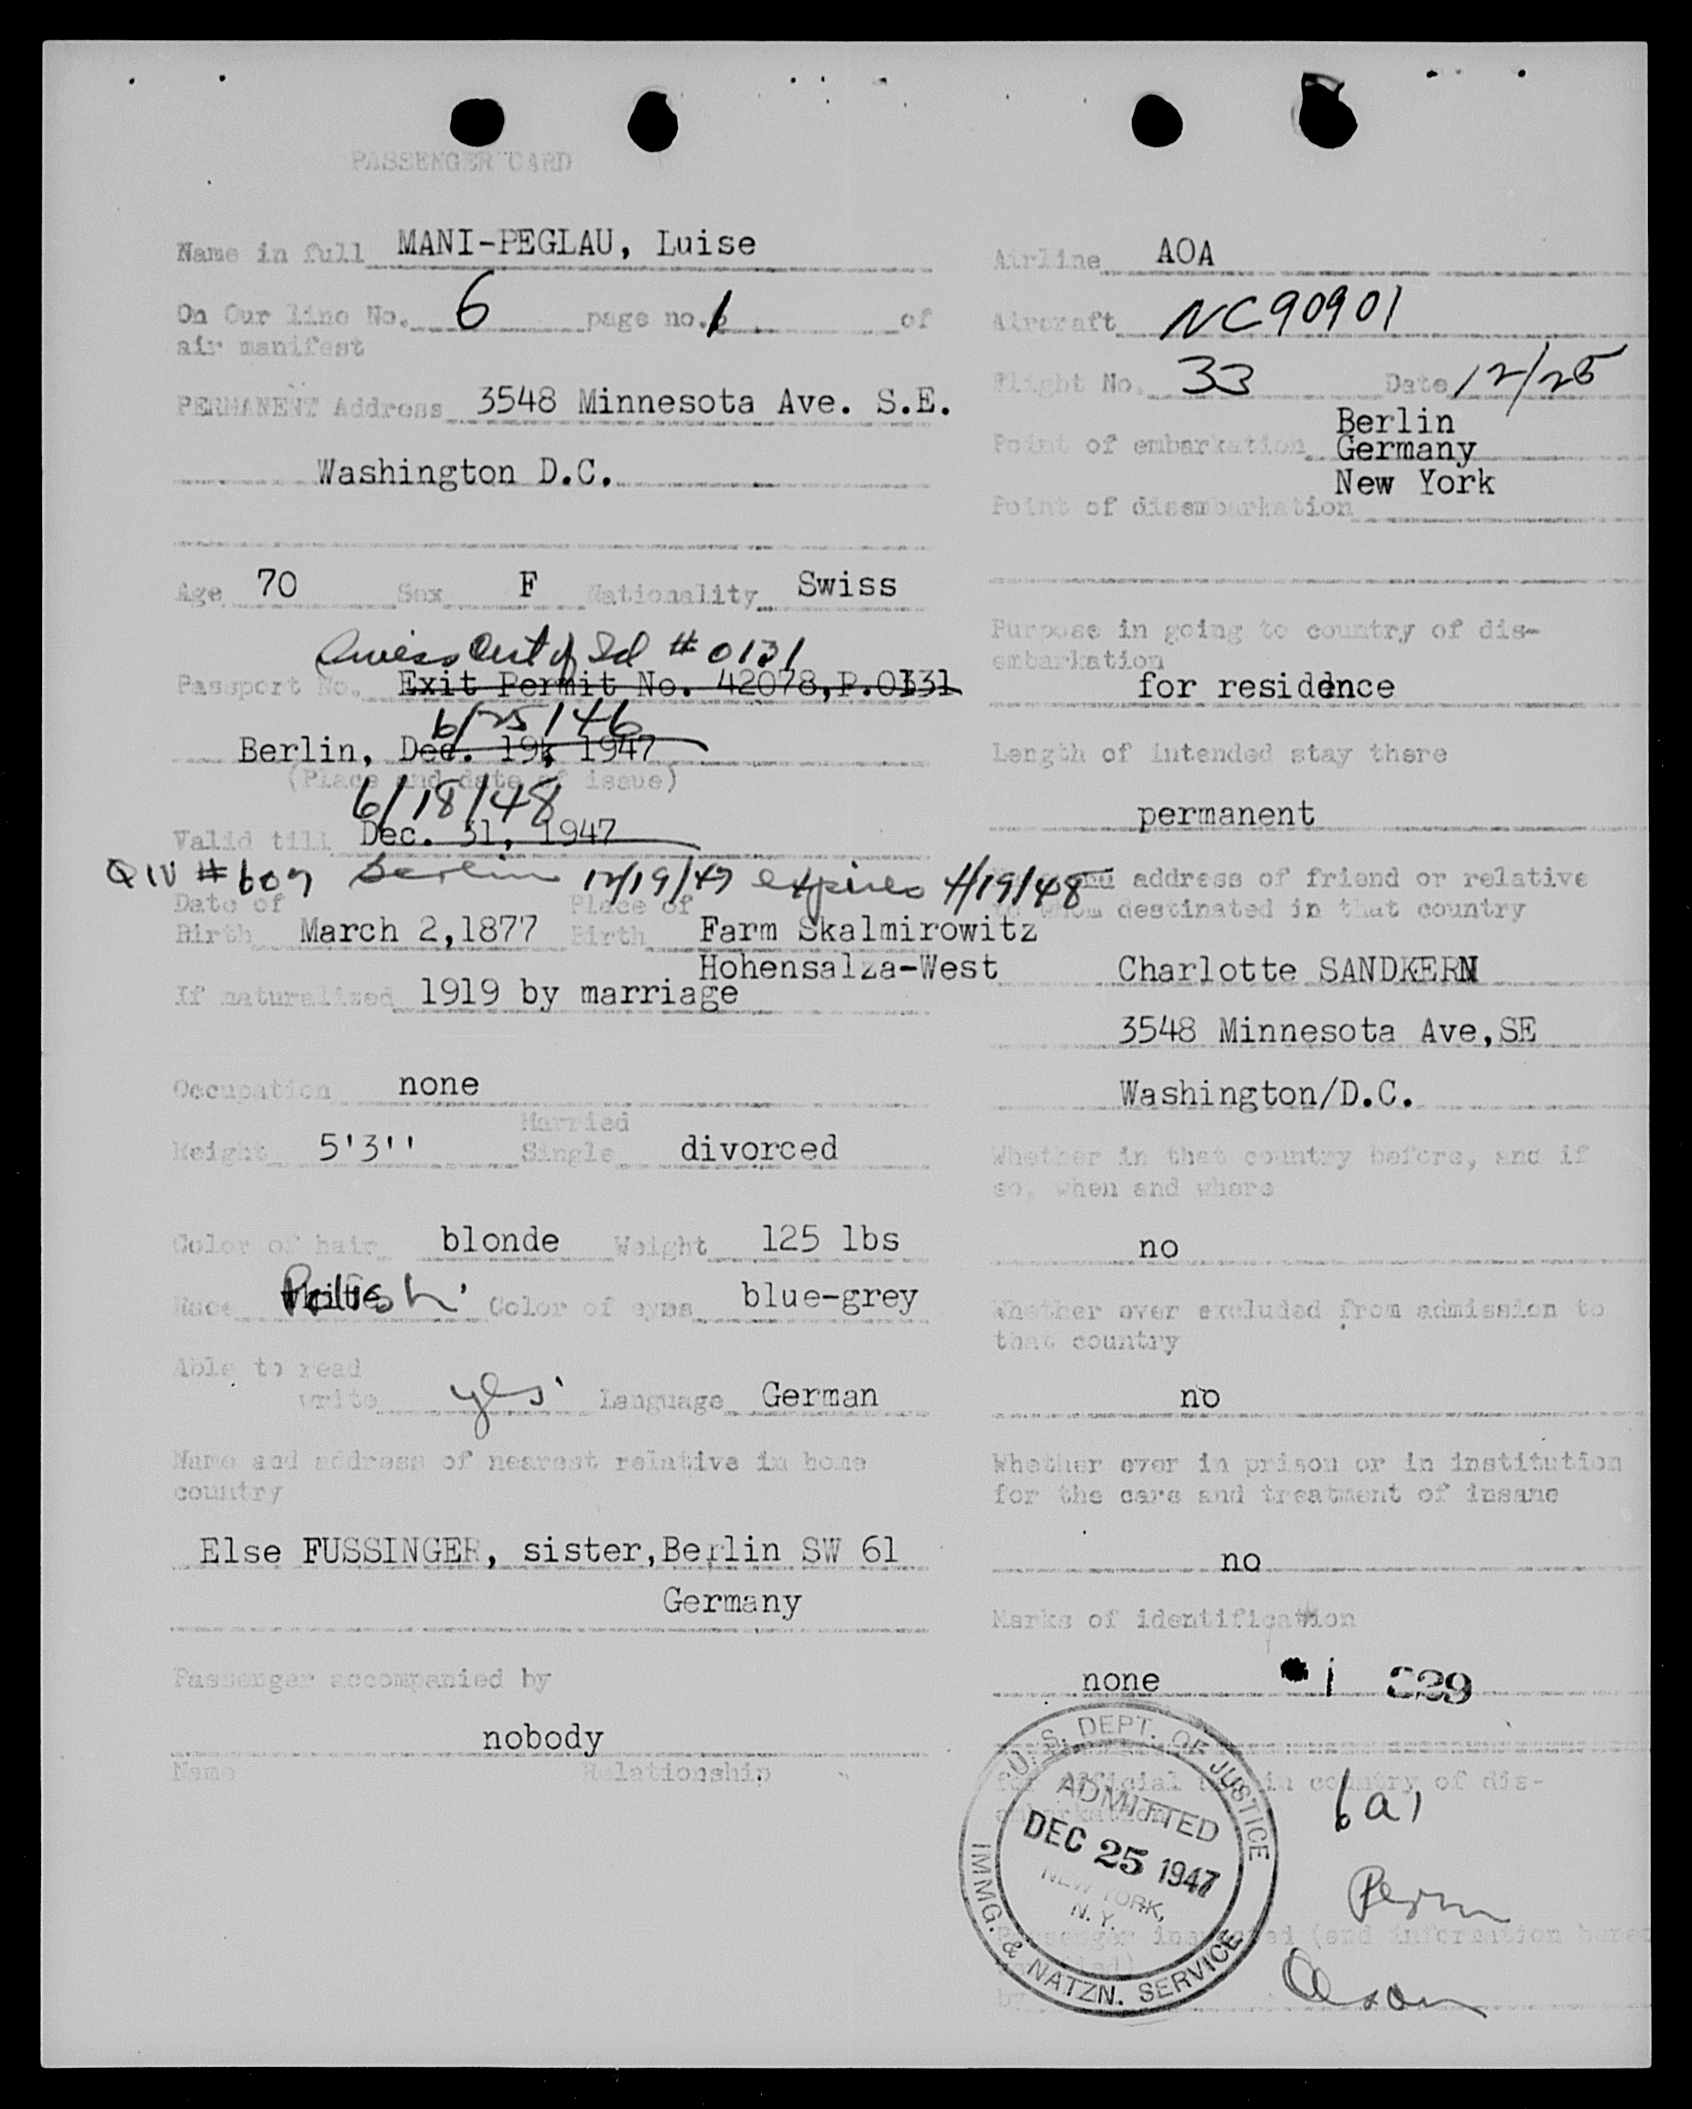 PASSENGER CARD
Name in full MANI-PEGLAU, Luise
On Our line No. 6 page no. 1 of
air manifest
PERMANENT Address 3548 Minnesota Ave. S.E.
Washington D.C.
Age 70 Sex F Nationality Swiss
Swiss Cert of Id # 0131
Passport No. Exit Permit No. 42078,P.0131
6/25/46
Berlin, Dec. 19, 1947
(Place and date of issue)
6/18/48
Valid till Dec. 31, 1947
QIV # 607 Berlin 12/19/47 expires 4/19/48
Date of Place of
Birth March 2,1877 Birth Farm Skalmirowitz
Hohensalza-West
If naturalized 1919 by marriage
Occupation none
Married
Height 5'3'' Single divorced
Color of hair blonde Weight 125 lbs
Race Polish Color of eyes blue-grey
Able to read
write yes Language German
Name and address of nearest relative in home
country
Else FUSSINGER, sister,Berlin SW 61
Germany
Passenger accompanied by
nobody
Name Relationship
Airline AOA
Aircraft NC90901
Flight No. 33 Date 12/25
Berlin
Point of embarkation Germany
New York
Point of disembarkation
Purpose in going to country of dis-
embarkation
for residence
Length of intended stay there
permanent
and address of friend or relative
to whom destinated in that country
Charlotte SANDKERN
3548 Minnesota Ave,SE
Washington/D.C.
Whether in that country before, and if
so, when and where
no
Whether ever excluded from admission to
that country
no
Whether ever in prison or in institution
for the care and treatment of insane
no
Marks of identification
none 1 329
for official use in country of dis-
embarkation
U.S. DEPT. OF JUSTICE
ADMITTED
DEC 25 1947
NEW YORK,
N.Y.
IMMG. & NATZN. SERVICE
6a1
Perm
Passenger inspected (and information hereo
by
Olson